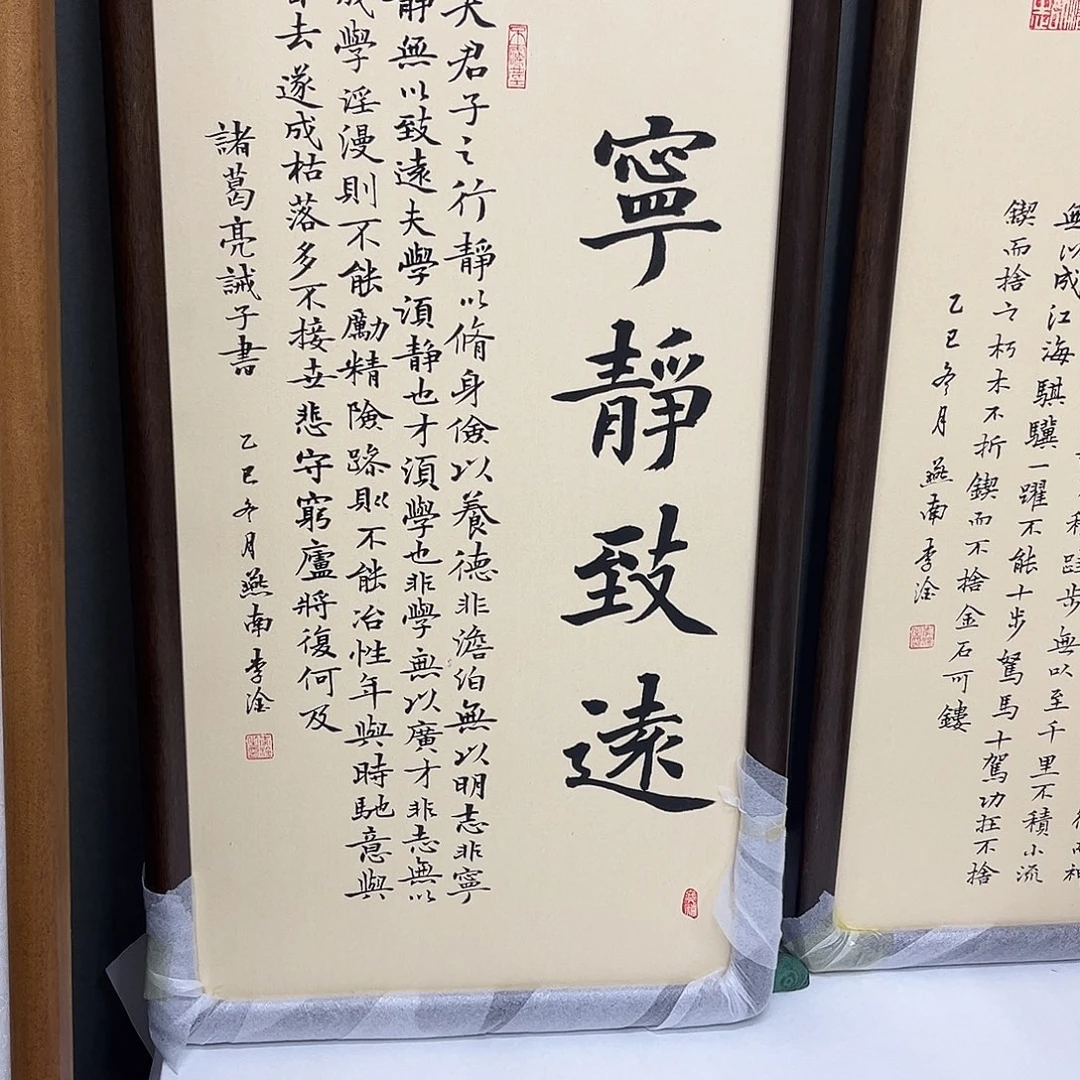 寧靜致遠
夫君子之行靜以脩身儉以養德非澹泊無以明志非寧
靜無以致遠夫學須靜也才須學也非學無以廣才非志無以
成學淫漫則不能勵精險躁則不能冶性年與時馳意與
去遂成枯落多不接世悲守窮廬將復何及
諸葛亮誡子書
乙巳冬月燕南李淦
積跬步無以至千里不積小流
無以成江海騏驥一躍不能十步駑馬十駕功在不捨
鍥而捨之朽木不折鍥而不捨金石可鏤
乙巳冬月燕南李淦